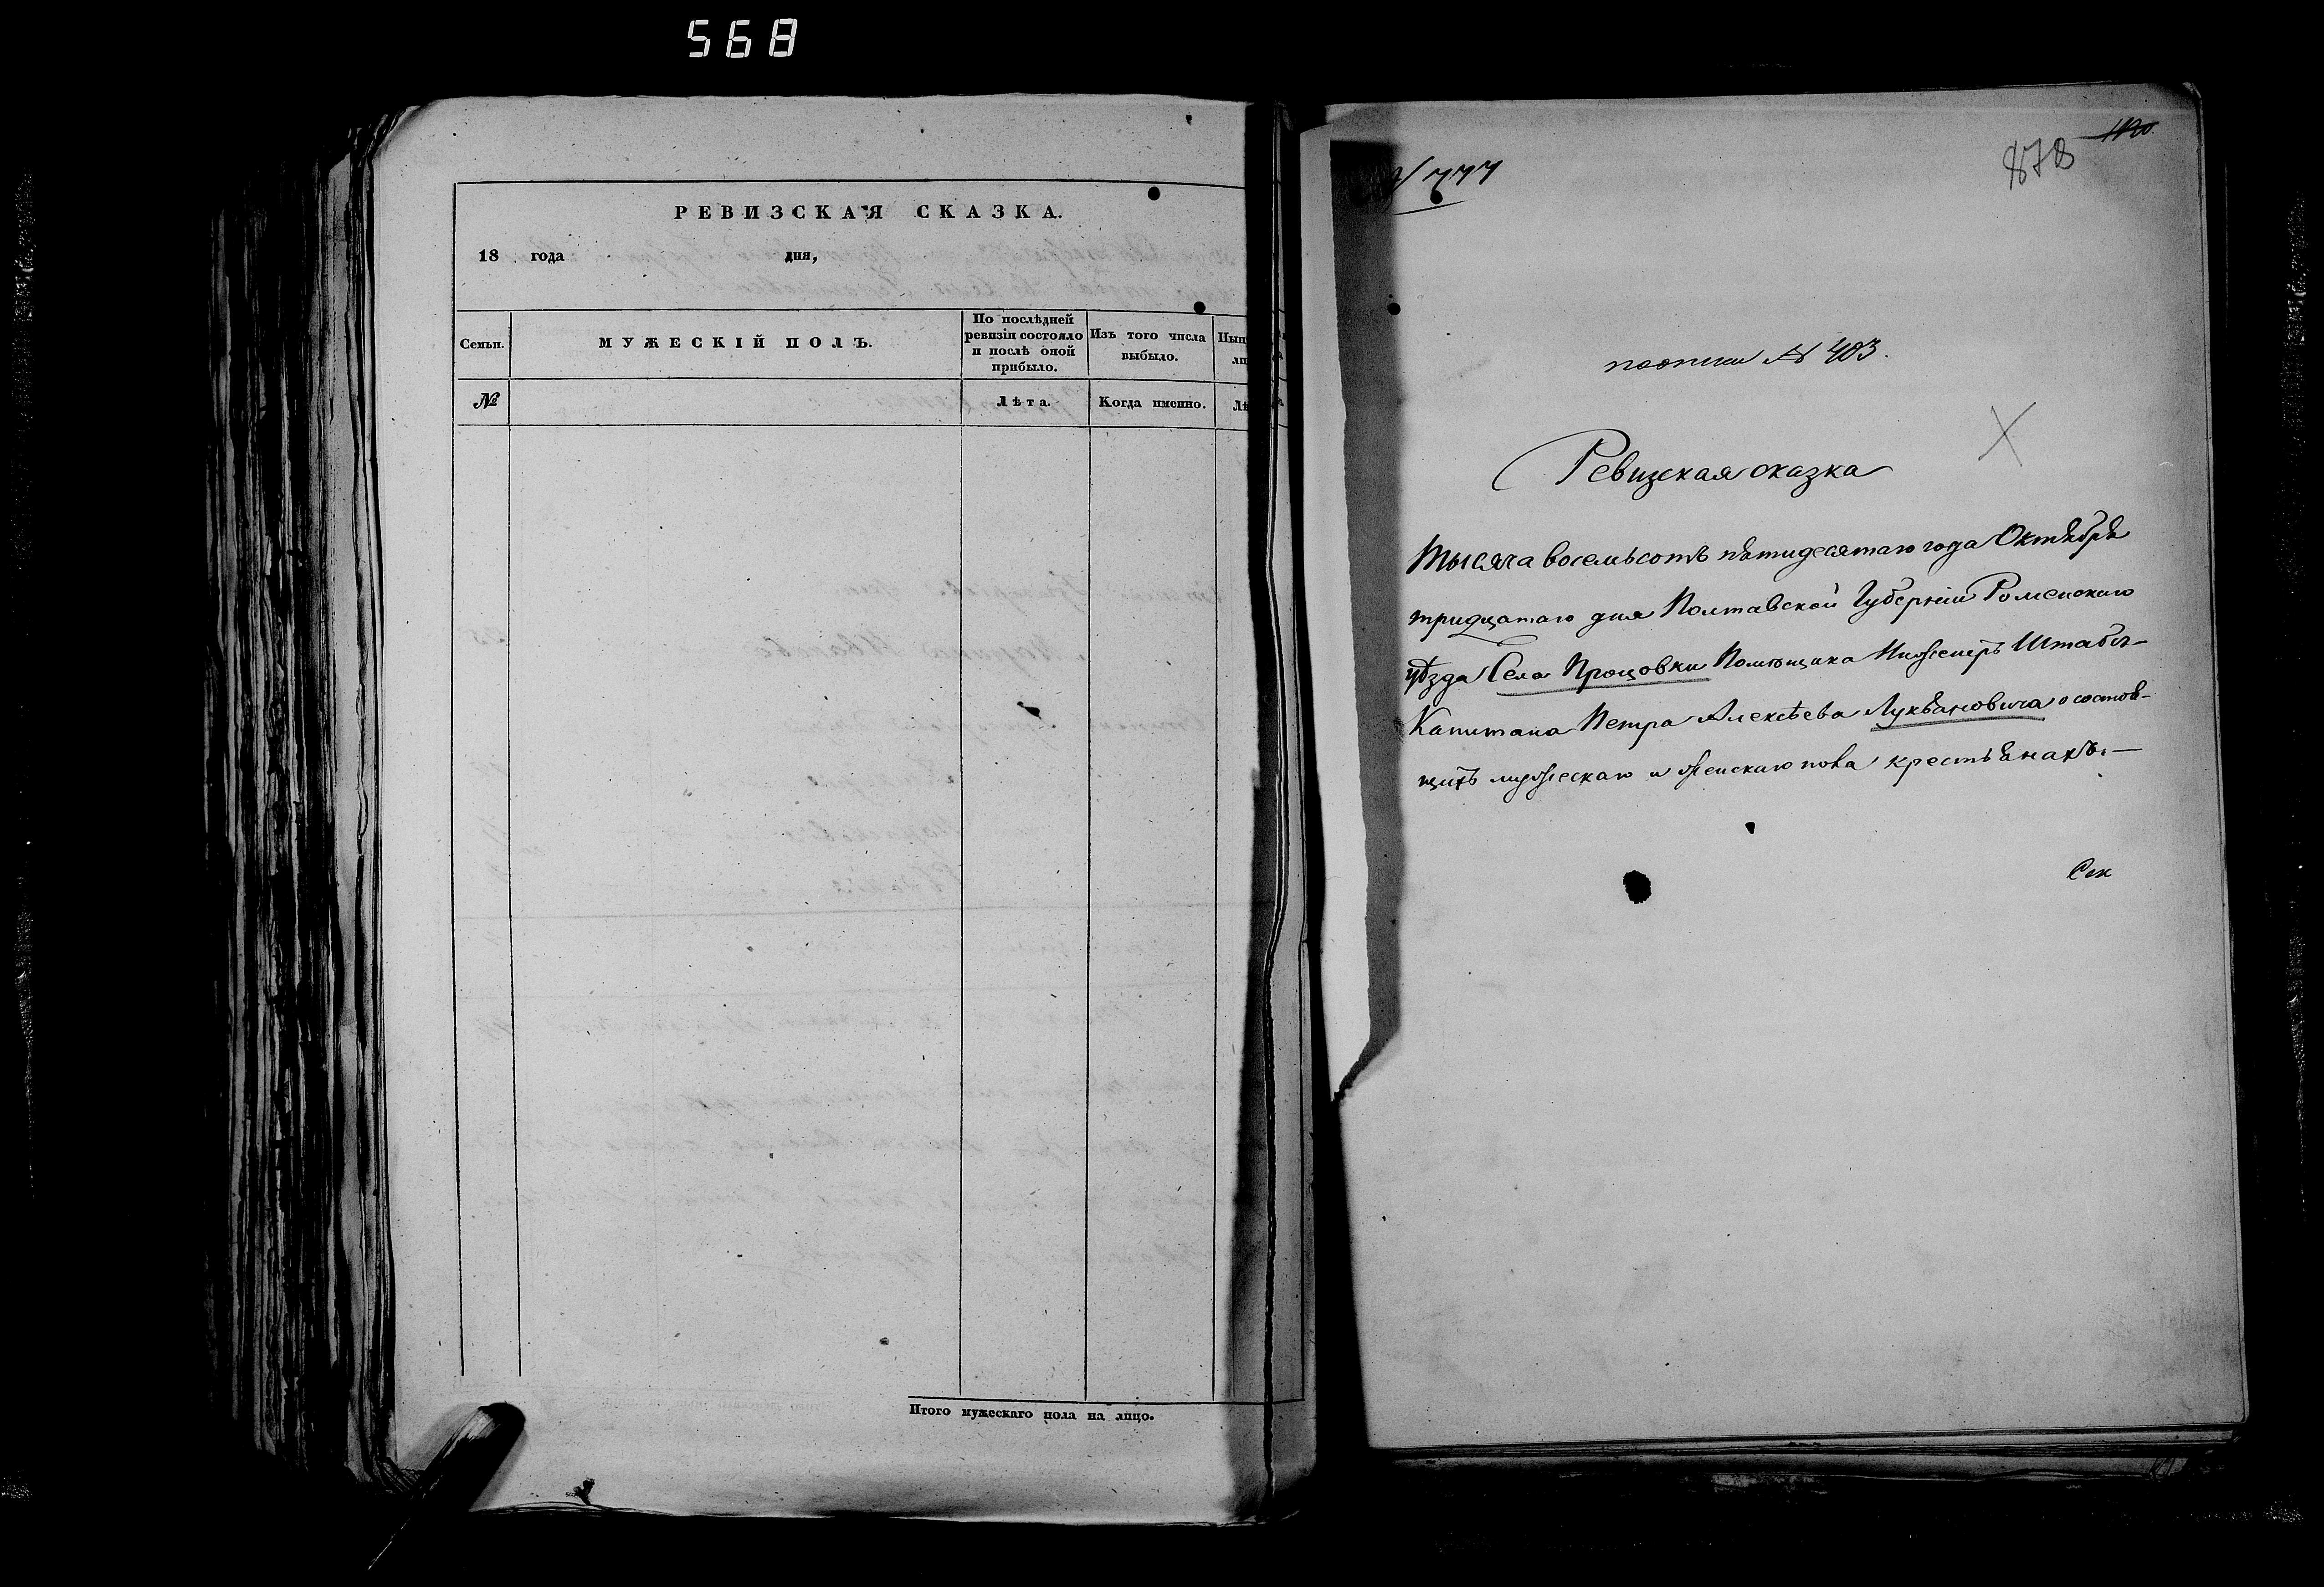 568
РЕВИЗСКАЯ СКАЗКА.
18 года дня,
Семьи.
МУЖЕСКІЙ ПОЛЪ.
По послѣдней
ревизіи состояло
и послѣ оной
прибыло.
Изъ того числа
выбыло.
№
Лѣта.
Когда именно.
Итого мужескаго пола на лицо.
№ 777
878
по описи № 403.
Ревизская сказка
Тысяча восемьсотъ пятидесятаго года Октября
тридцатаго дня Полтавской Губерніи Роменскаго
уѣзда Села Процовки Помѣщика Инженеръ Штабсъ-
Капитана Петра Алексѣева Лукьяновича о состоя-
щихъ мужескаго и женскаго пола крестьянахъ.—